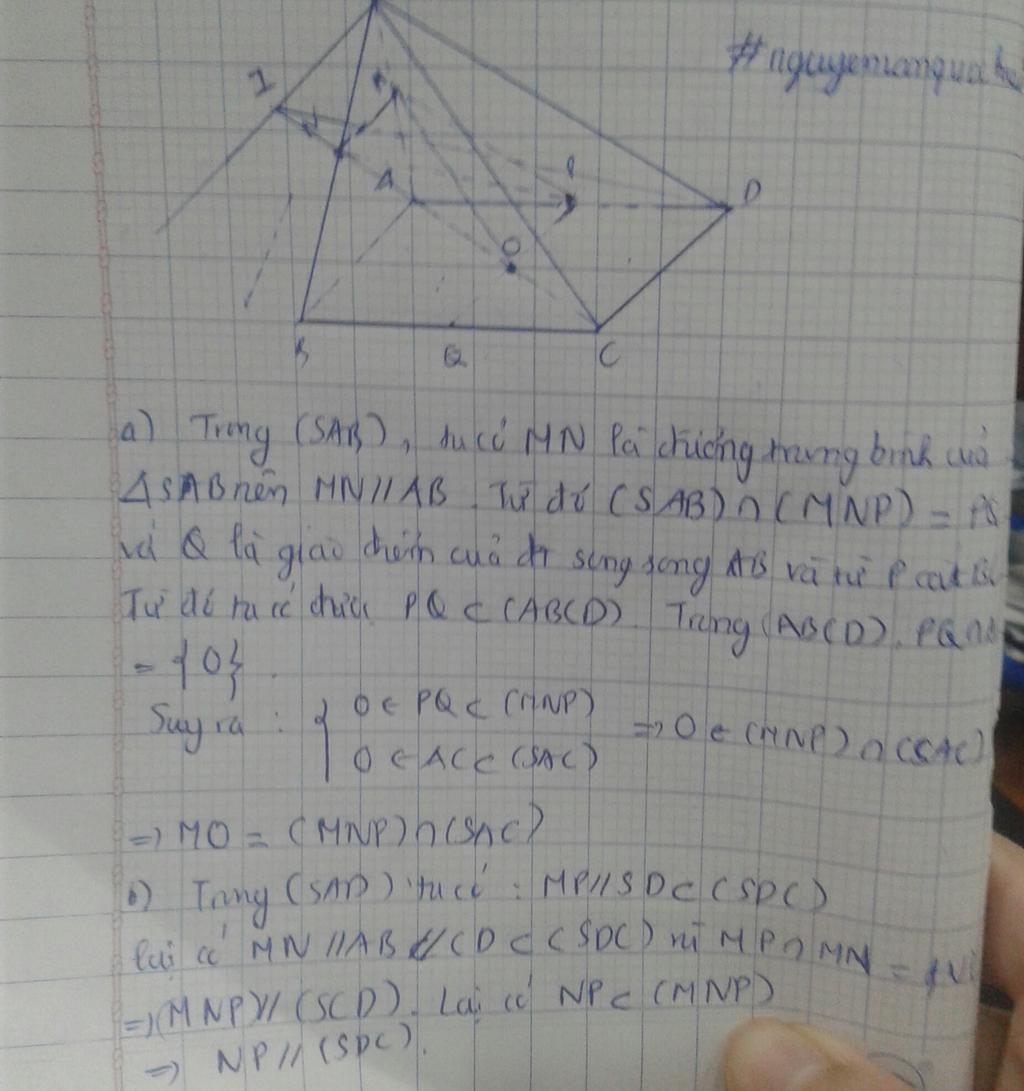 #nguyenmanqua
I
K
N
A
P
D
O
B
Q
C
a) Trong (SAB), ta có MN là đường trung bình của
ΔSAB nên MN//AB. Từ đó (SAB)∩(MNP) =
và Q là giao điểm của đt song song AB và từ P cắt
Từ đó ta có được PQ⊂(ABCD). Trong (ABCD). PQ∩
= {O}.
Suy ra : { O∈PQ⊂(MNP)
O∈AC⊂(SAC) => O∈(MNP)∩(SAC)
=> MO = (MNP)∩(SAC)
b) Trong (SAD) ta có : MP//SD⊂(SDC)
lại có MN//AB//CD⊂(SDC) vì MP∩MN =
=>(MNP)//(SCD). Lại có NP⊂(MNP)
=> NP//(SDC).